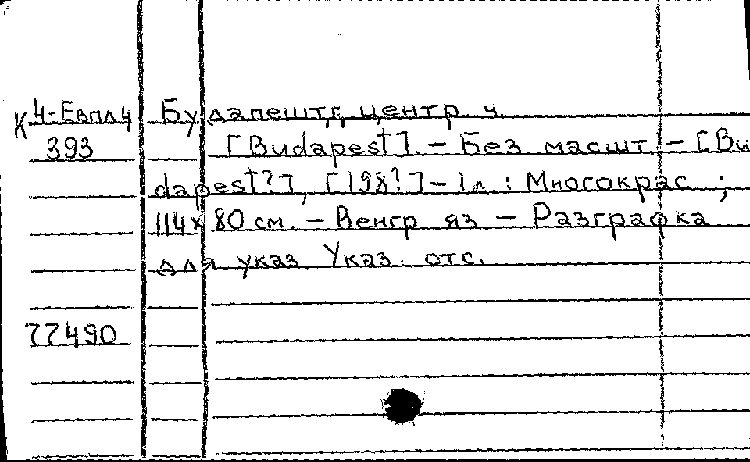 К Ч-Евпл4 Будапешт, центр ч.
393 [Budapest]. – Без масшт. – [Bu
dapest?], [198?] – 1 л : Многокрас ;
114x80 см. – Венгр яз – Разграфка
для указ Указ. отс.
77490